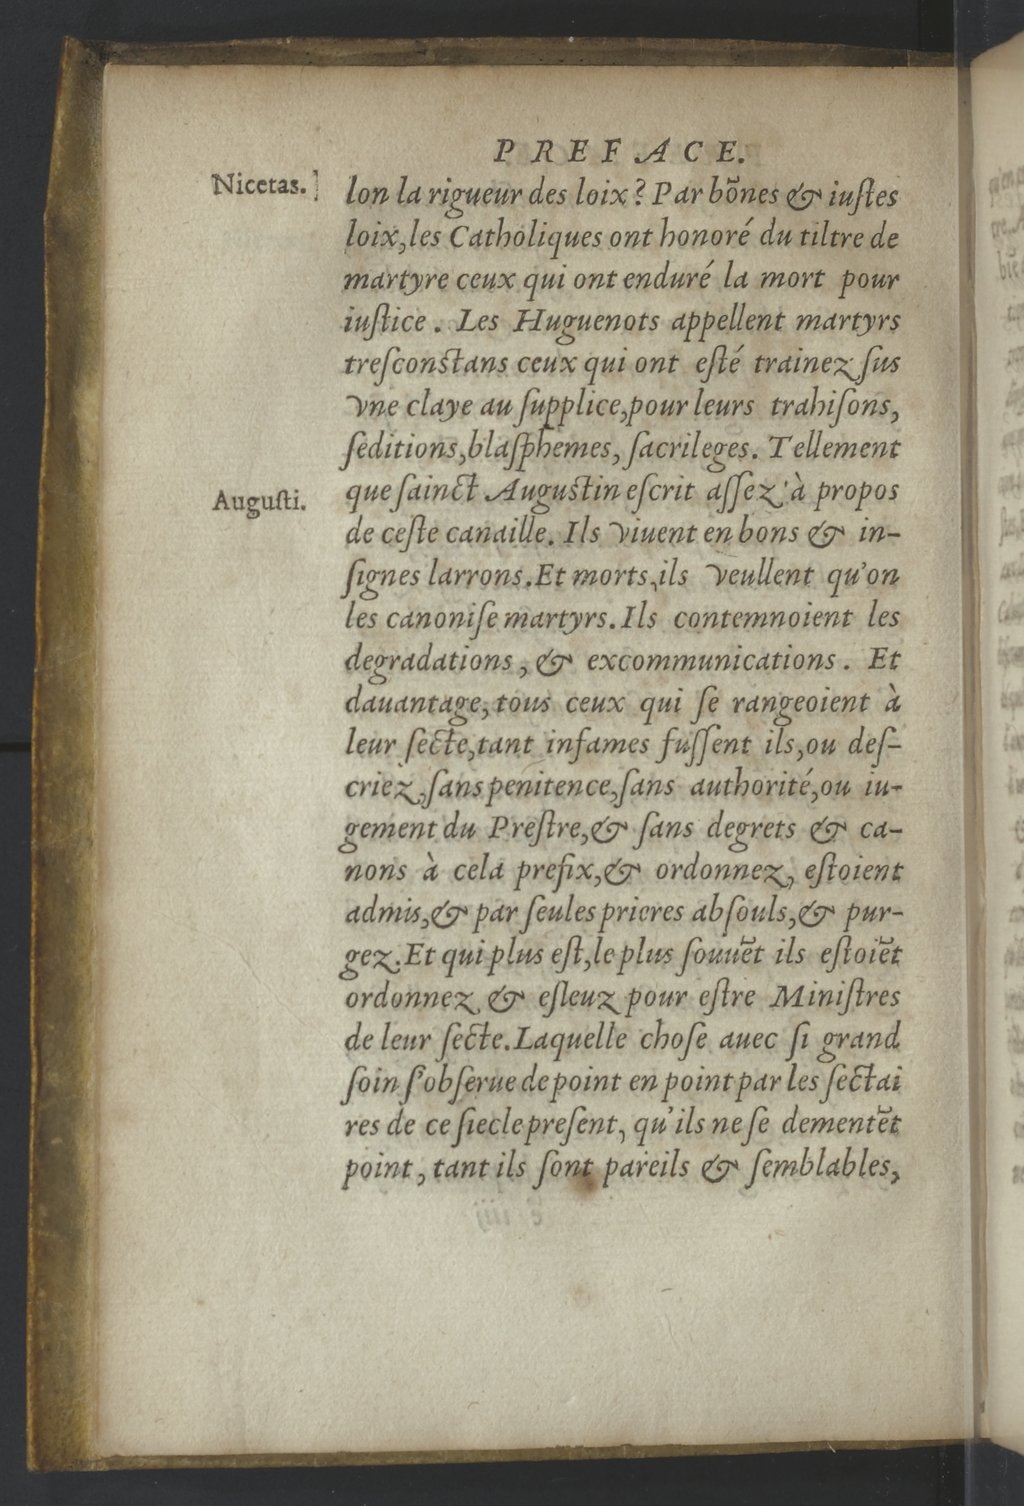 PREFACE.
Nicetas.]
lon la rigueur des loix? Par bõnes & iuſtes
loix, les Catholiques ont honoré du tiltre de
martyre ceux qui ont enduré la mort pour
iuſtice. Les Huguenots appellent martyrs
treſconſtans ceux qui ont eſté trainez ſus
vne claye au ſupplice, pour leurs trahiſons,
ſeditions, blaſphemes, ſacrileges. Tellement
Auguſti.
que ſainct Auguſtin eſcrit aſſez à propos
de ceſte canaille. Ils viuent en bons & in-
ſignes larrons. Et morts, ils veullent qu'on
les canoniſe martyrs. Ils contemnoient les
degradations, & excommunications. Et
dauantage, tous ceux qui ſe rangeoient à
leur ſecte, tant infames fuſſent ils, ou deſ-
criez, ſans penitence, ſans authorité, ou iu-
gement du Preſtre, & ſans degrets & ca-
nons à cela prefix, & ordonnez, eſtoient
admis, & par ſeules prieres abſouls, & pur-
gez. Et qui plus eſt, le plus ſouuẽt ils eſtoiẽt
ordonnez & eſleuz pour eſtre Miniſtres
de leur ſecte. Laquelle choſe auec ſi grand
ſoin ſ'obſerue de point en point par les ſectai
res de ce ſiecle preſent, qu'ils ne ſe dementẽt
point, tant ils ſont pareils & ſemblables,